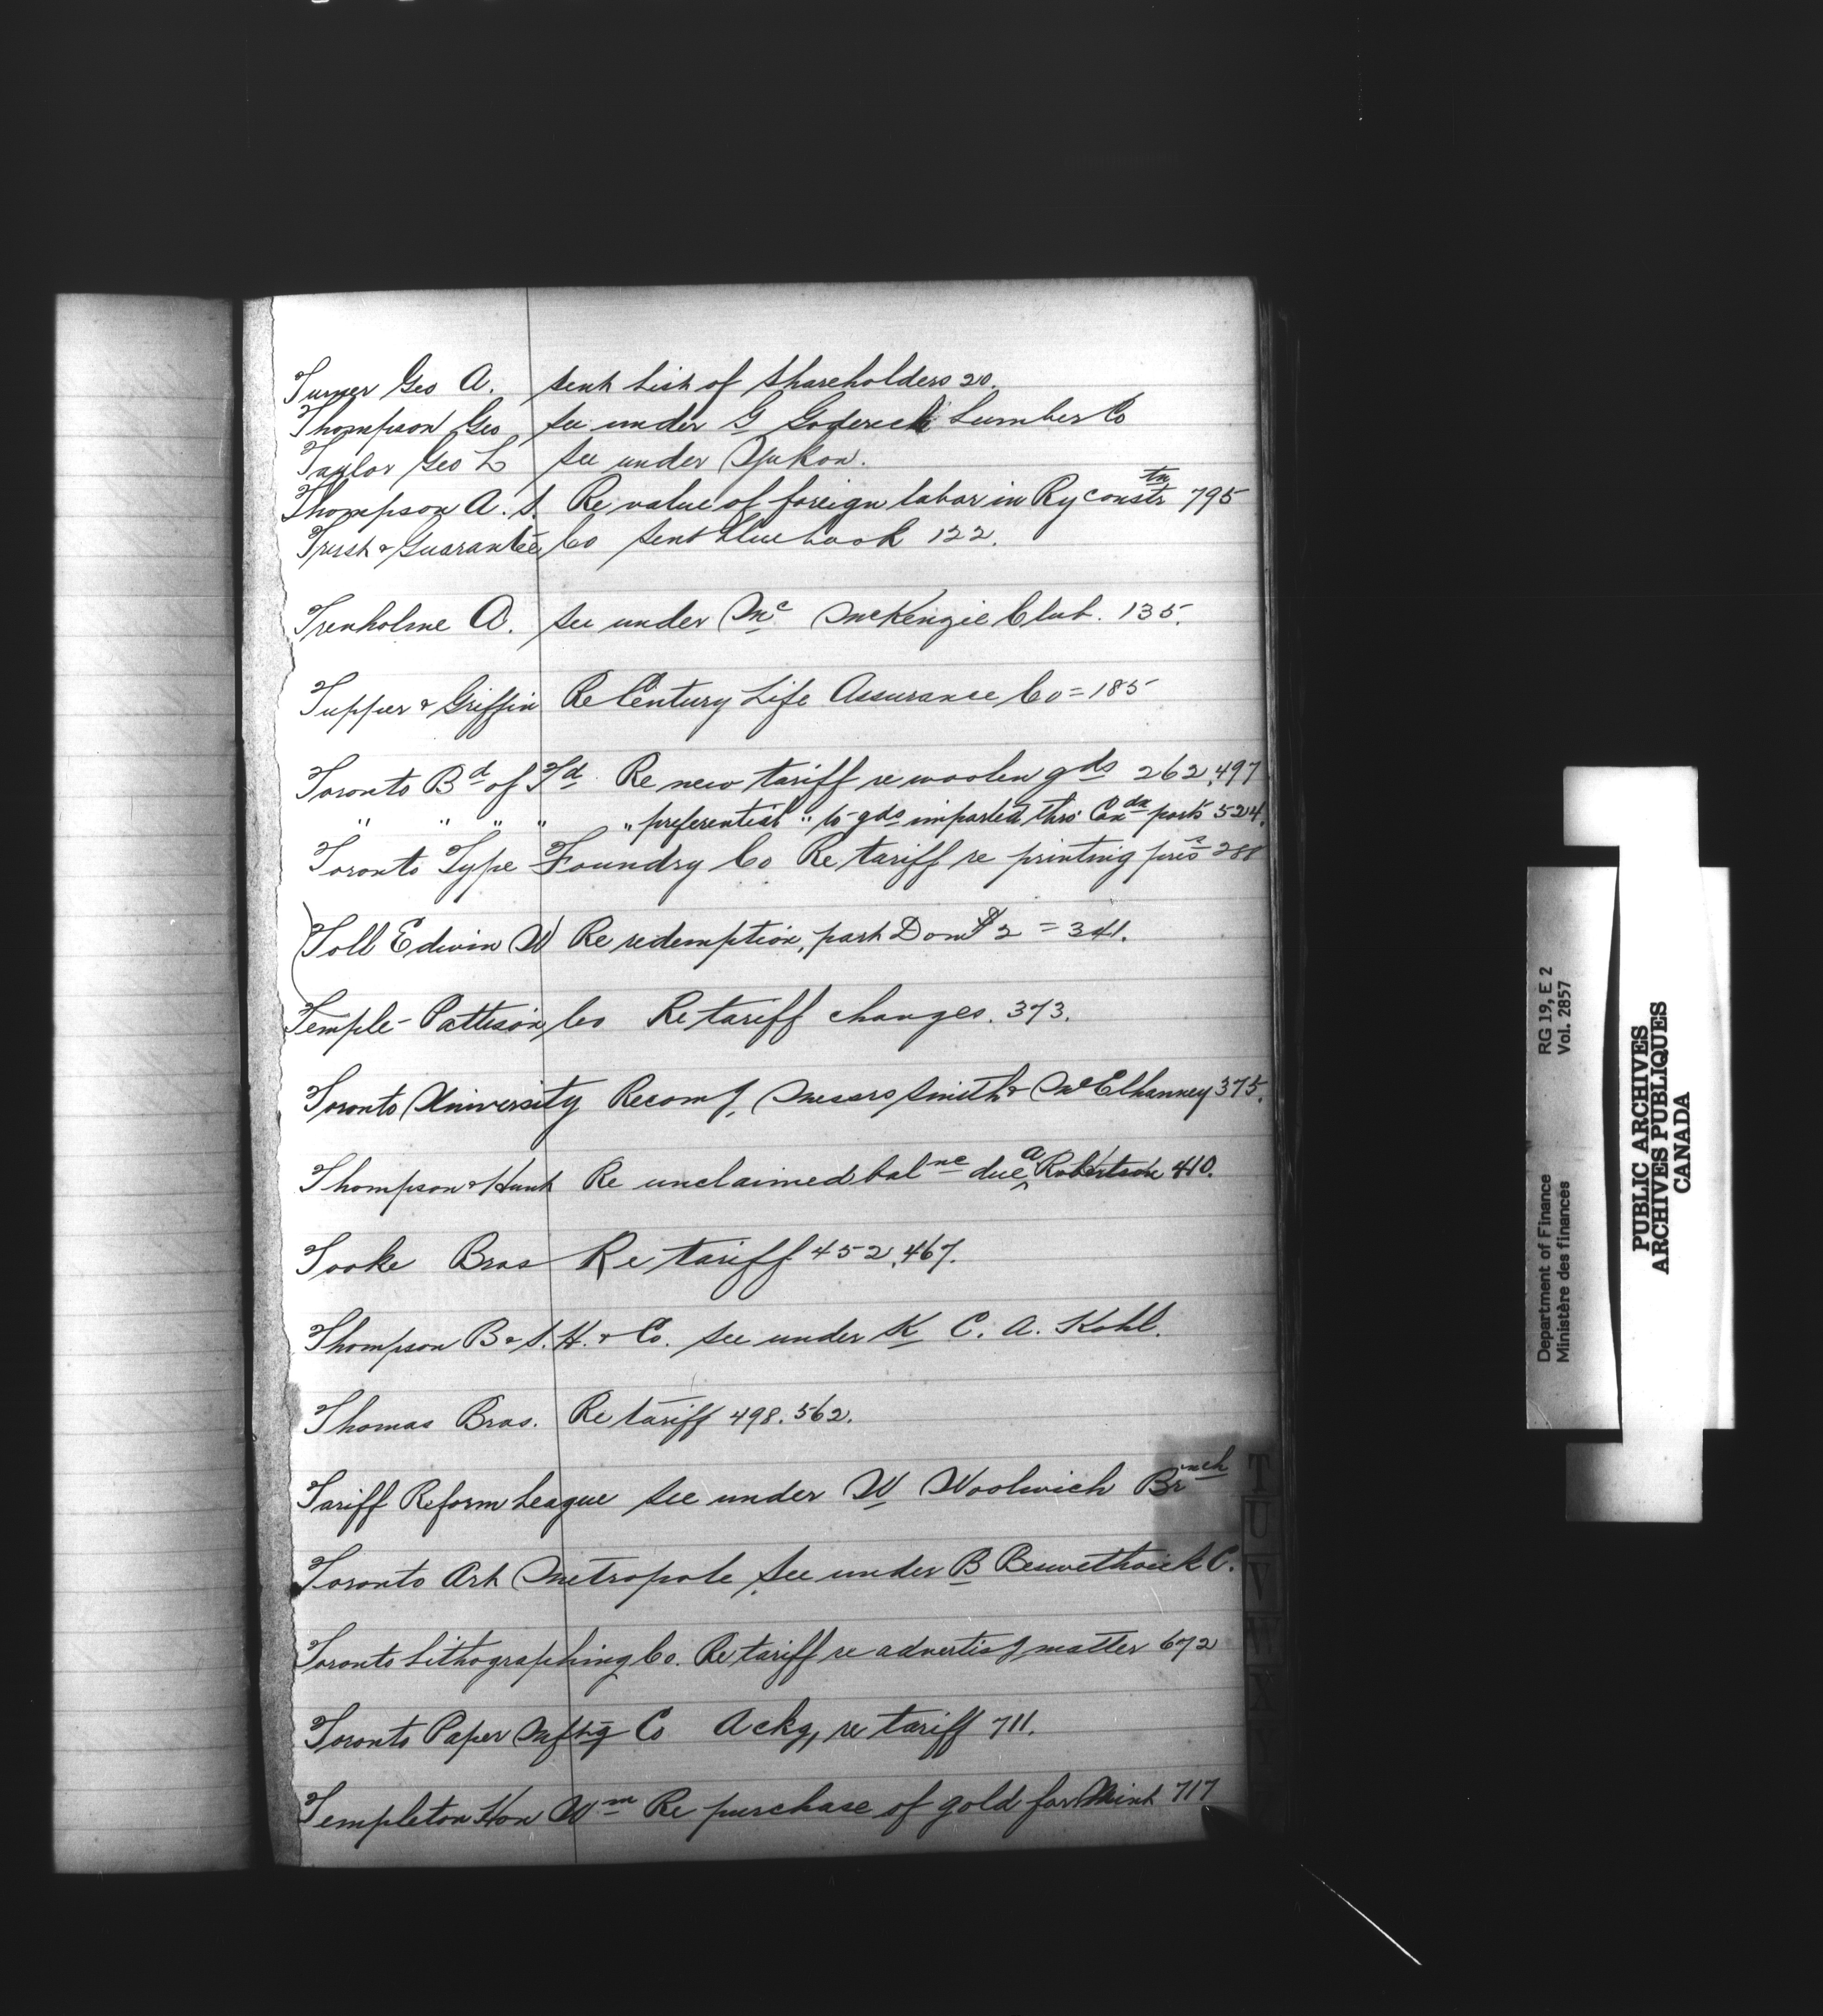 Turner Geo A. sent List of Shareholders 20.
Thompson Geo see under G Goderich Lumber Co
Taylor Geo L see under Yukon.
Thompson A. S. Re value of foreign labor in Ry constr tn 795
Trust & Guarantee Co sent blue book 122.
Trenholme A. see under Mc McKenzie Club. 135.
Tupper & Griffin Re Century Life Assurance Co = 185
Toronto Bd of Td. Re new tariff re woolen gds 262, 497
" " " " " preferential " to gds imported thro' Can dn ports 524.
Toronto Type Foundry Co Re tariff re printing pres s 288
Toll Edwin W Re redemption, part Dom $2 = 341.
Temple-Pattison Co Re tariff changes. 373.
Toronto University Recomg, Messrs Smith & McElhanney 375.
Thompson & Hunt Re unclaimed bal nce due A Robertson 410.
Tooke Bros Re tariff 452, 467.
Thompson B & S. H. & Co. see under K C. A. Kohl.
Thomas Bros. Re tariff 498. 562.
Tariff Reform League see under W Woolwich Br nch
Toronto Art Metropole see under B C.
Toronto Lithographing Co. Re tariff re advertisg matter 672
Toronto Paper Mftg Co Ackg, re tariff 711.
Templeton Hon Wm Re purchase of gold for Mint 717
T
U
V
W
X
Department of Finance RG 19, E 2
Ministère des finances Vol. 2857
PUBLIC ARCHIVES
ARCHIVES PUBLIQUES
CANADA